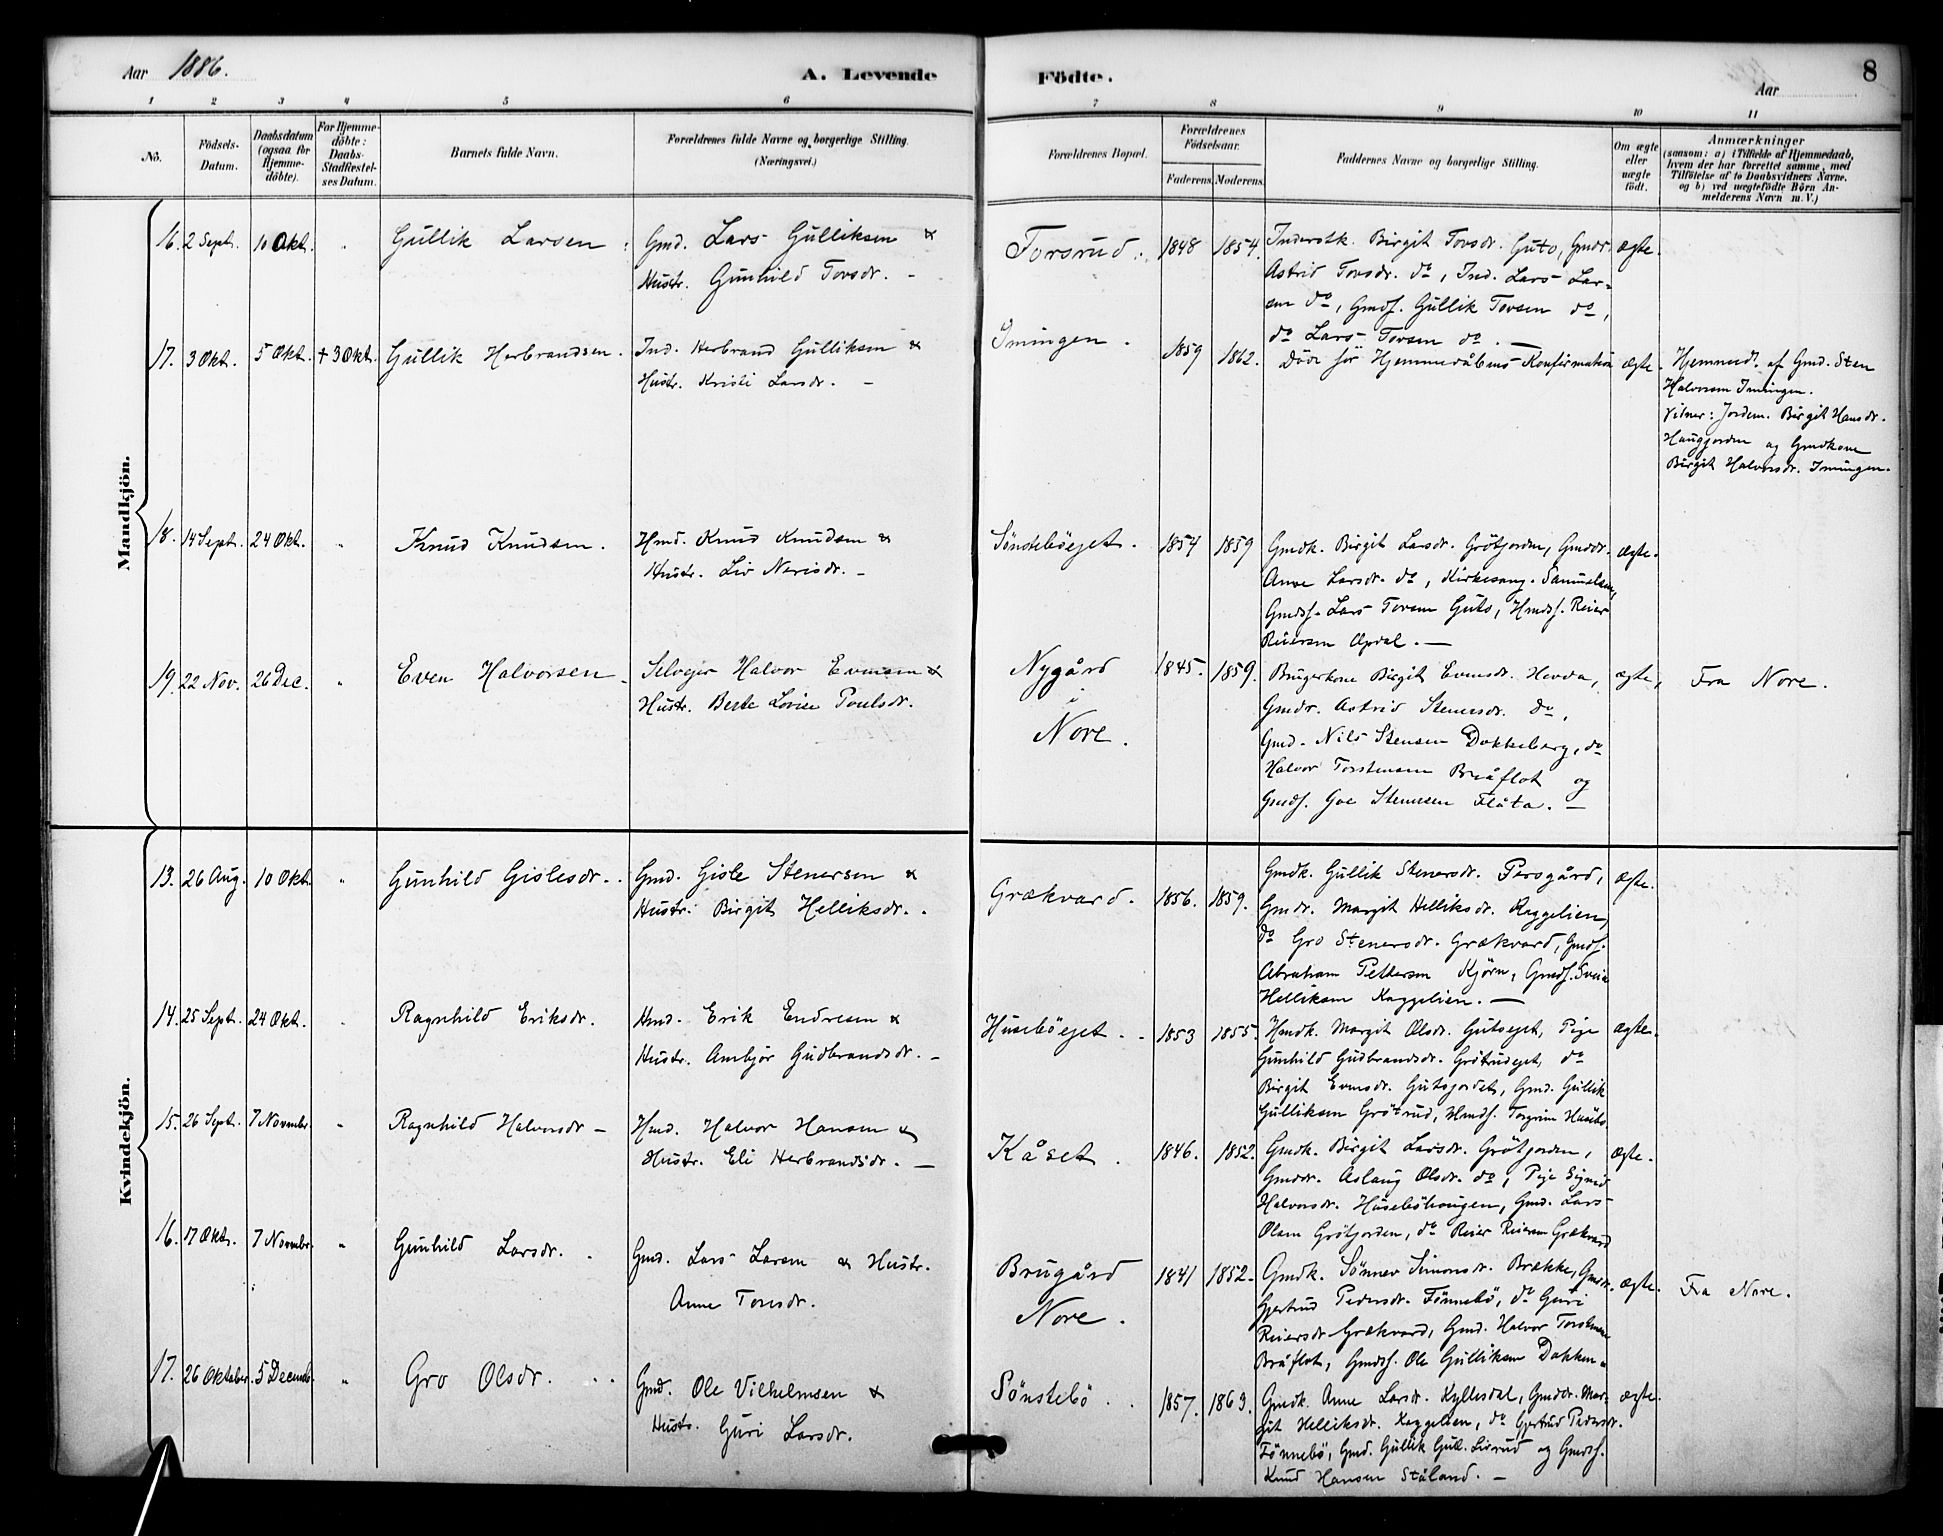 Aar 1886.
A. Levende
Födte.
Aar
8
1 2 3 4 5 6 7 8 9 10 11
No.
Födsels-
Datum.
Daabsdatum
(ogsaa for
Hjemme-
döbte).
For Hjemme-
döbte:
Daabs-
Stadfæstel-
ses Datum.
Barnets fulde Navn.
Forældrenes fulde Navne og borgerlige Stilling.
(Næringsvei.)
Forældrenes Bopæl.
Forældrenes
Födselsaar.
Faderens. Moderens.
Faddernes Navne og borgerlige Stilling.
Om ægte
eller
uægte
födt.
Anmærkninger
(saasom: a) i Tilfælde af Hjemmedaab,
hvem der har forrettet samme, med
Tilföielse af to Daabsvidners Navne,
og b) ved uægtefödte Börn An-
melderens Navn m. V.)
Mandkjön.
16. 2 Sept. 10 Okt. " Gullik Larsen
Gmd. Lars Gulliksen &
Hustr. Gunhild Torsdr. -
Torsrud. 1848 1854.
Inderstk. Birgit Torsdr. Guto, Gmdr.
Astrid Torsdr. do, Ind. Lars Lar-
sen do, Gmds. Gullik Torsen do,
do Lars Torsen do. —
ægte.
17. 3 Okt. 5 Okt. + 3 Okt. Gullik Herbrandsen.
Ind. Herbrand Gulliksen &
Hustr. Kristi Larsdr. -
Imingen. 1859 1862.
Döde för Hjemmedåbens Konfirmation
ægte.
Hjemmed. af Gmd. Sten
Halvorsen Imingen.
Vitner: Jordem. Birgit Hansdr.
Haugjorden og Gmdkone
Birgit Halvorsdr. Imingen.
18. 14 Sept. 24 Okt. " Knud Knudsen.
Hmd. Knud Knudsen &
Hustr. Liv Nerisdr. -
Sönsteböejet. 1854 1859
Gmdk. Birgit Larsdr. Grötjorden, Gmddr.
Anne Larsdr. do, Kirkesang. Samuelsen,
Gmds. Lars Torsen Guto, Hmds. Reier
Reiersen Opdal. —
ægte.
19. 22 Nov. 26 Dec. " Even Halvorsen.
Selvejer Halvor Evensen &
Hustr. Berte Lovise Poulsdr.
Nygård
i
Nore. 1845. 1859.
Brugerkone Birgit Evensdr. Hevda,
Gmdr. Astrid Stenersdr. do,
Gmd. Nils Stensen Dokkeberg, do
Halvor Torstensen Bråflot og
Gmds. Goe Stensen Flåta. —
ægte,
Fra Nore.
Kvindekjön.
13. 26 Aug. 10 Okt. " Gunhild Gislesdr.
Gmd. Gisle Stenersen &
Hustr. Birgit Helliksdr.
Grækvard. 1856. 1859.
Gmdk. Gullik Stenersdr. Persgård,
Gmdr. Margit Helliksdr. Kaggelien,
do Gro Stenersdr. Grækvard, Gmds.
Abraham Pettersen Kjörn, Gmds. Svein
Helliksen Kaggelien. —
ægte.
14. 25 Sept. 24 Okt. Ragnhild Eriksdr.
Hmd. Erik Endresen &
Hustr. Ambjör Gudbrandsdr. -
Huseböejet. 1853 1855.
Hmdk. Margit Olsdr. Gutsejet, Pige
Gunhild Gudbrandsdr. Grötrudejet, do
Birgit Evensdr. Gutsjordet, Gmd. Gullik
Gulliksen Grötrud, Hmds. Torgrim Husebö.
ægte.
15. 26 Sept. 7 Novembr. " Ragnhild Halvorsdr -
Hmd. Halvor Hansen &
Hustr. Eli Herbrandsdr. —
Kåset. 1846. 1852.
Gmdk. Birgit Larsdr. Grötjorden,
Gmddr. Aslaug Olsdr. do, Pige Sigrid
Halvorsdr. Huseböhaugen, Gmd. Lars
Olsen Grötjorden, do Reier Reiersen Grækvard
ægte.
16. 17 Okt. 7 Novembr. " Gunhild Larsdr.
Gmd. Lars Larsen & Hustr.
Anne Toresdr.
Brugård
Nore. 1841 1852.
Gmdk. Sönnev Simonsdr. Brække, Gmdr.
Gjertrud Pedersdr. Fönnebö, do Guri
Reiersdr. Grækvard, Gmd. Halvor Torstensen
Bråflot, Gmds. Ole Gulliksen Dokken.
ægte.
Fra Nore.
17. 26 Oktober. 5 Decemb. " Gro Olsdr.
Gmd. Ole Vilhelmsen &
Hustr. Guri Larsdr.
Sönstebö. 1857. 1863.
Gmdk. Anne Larsdr. Kyllesdal, Gmddr. Mar-
git Helliksdr. Kaggelien, do Gjertrud Pedersdr.
Fönnebö, Gmd. Gullik Gull. Livrud og Gmds.
Knud Hansen Ståland. —
ægte.